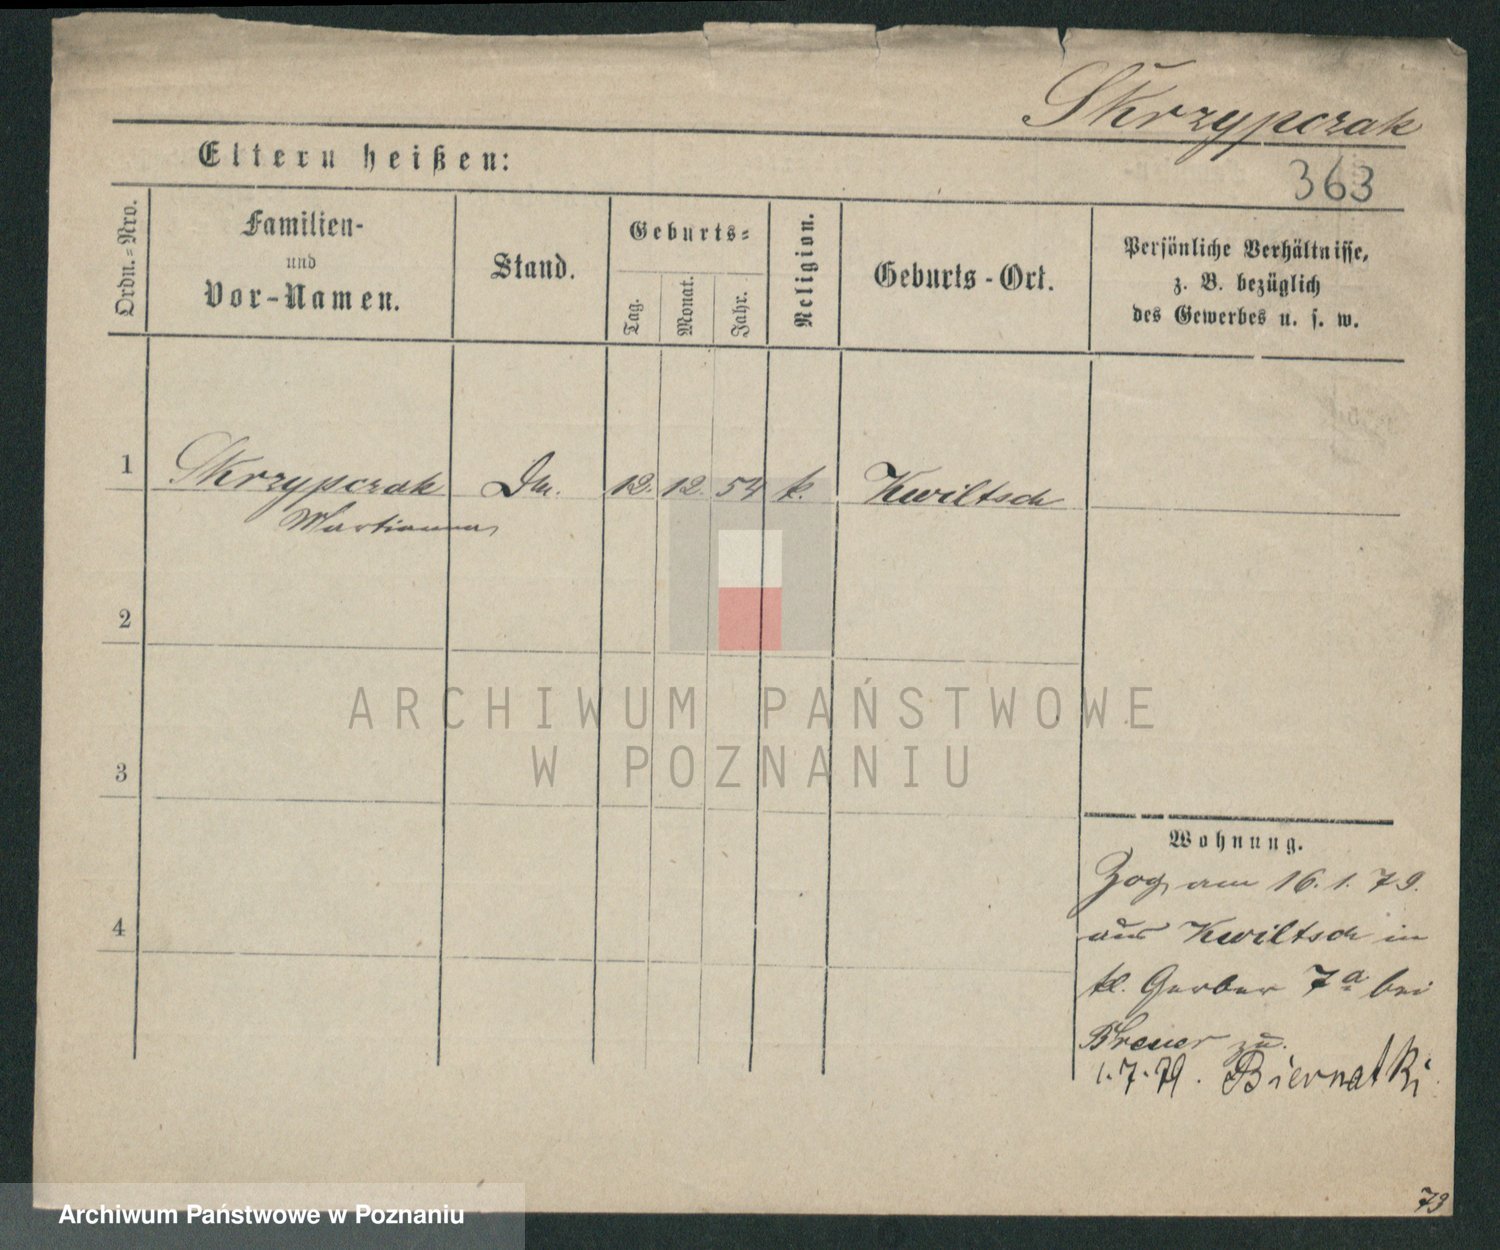 Skrzypczak
Eltern heißen:
363
Ordn.-Nro.
Familien-
und
Vor-Namen.
Stand.
Geburts-
Tag.
Monat.
Jahr.
Religion.
Geburts-Ort.
Persönliche Verhältnisse,
z. B. bezüglich
des Gewerbes u. s. w.
1
Skrzypczak
12. 12. 54 k. Kwiltsch
Marianna
2
3
4
ARCHIWUM PAŃSTWOWE
W POZNANIU
Wohnung.
Zog am 16. 1. 79.
aus Kwiltsch in
kl. Gerber 7a bei
Breuer zu.
1.7.79. Biernatki
73
Archiwum Państwowe w Poznaniu